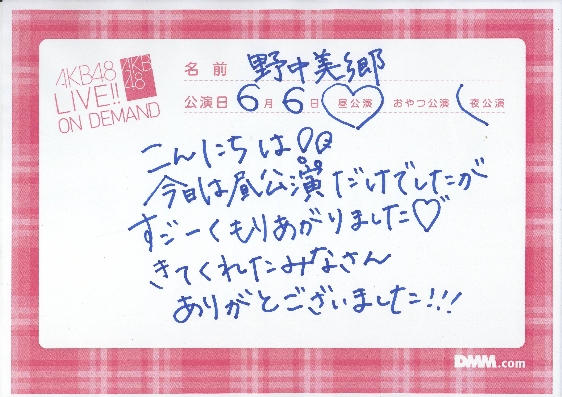 AKB48
LIVE!!
ON DEMAND
AKB
48
名前 野中美郷
公演日 6月6日 昼公演 おやつ公演 夜公演
こんにちは♡
今日は昼公演だけでしたが
すごーくもりあがりました♡
きてくれたみなさん
ありがとございました!!!
DMM.com